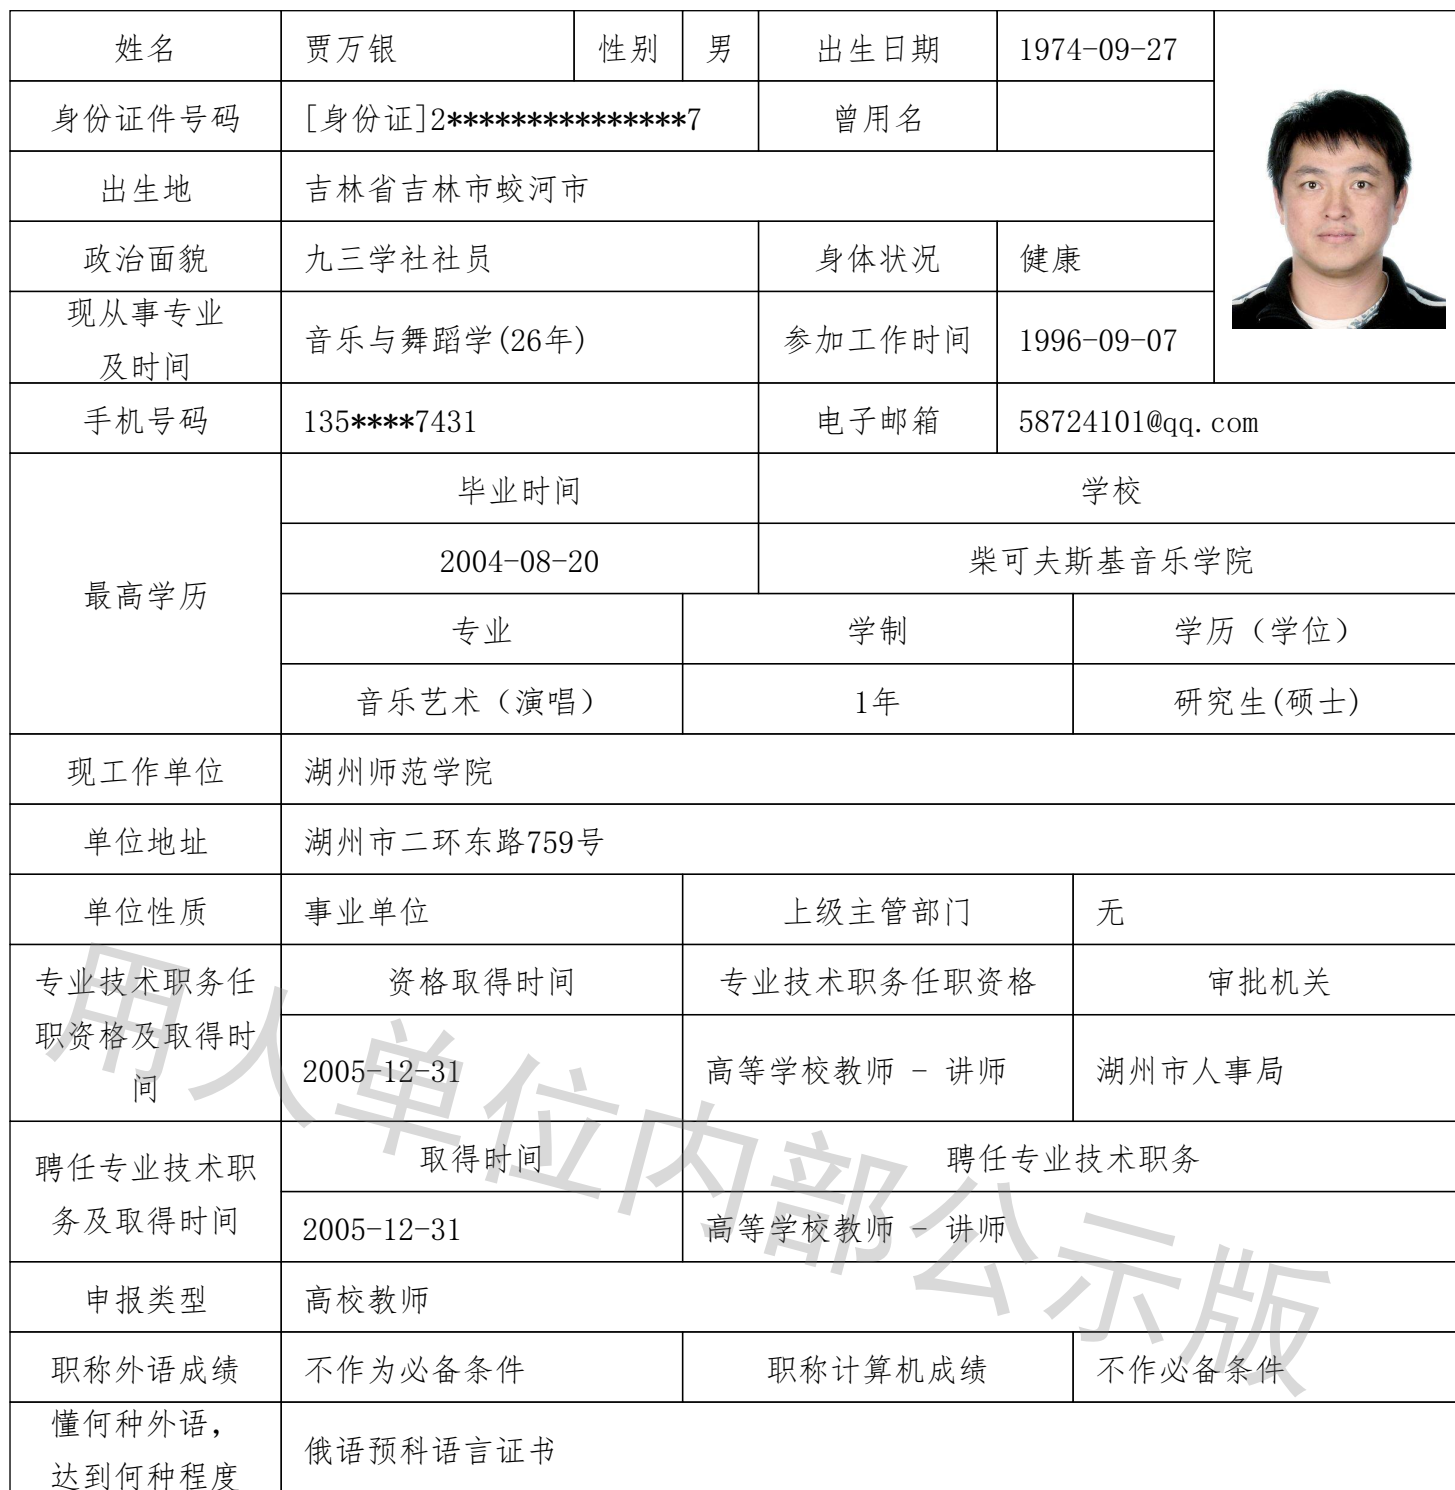 姓名 贾万银 性别 男 出生日期 1974-09-27
身份证件号码 [身份证]2***************7 曾用名
出生地 吉林省吉林市蛟河市
政治面貌 九三学社社员 身体状况 健康
现从事专业
及时间
音乐与舞蹈学(26年) 参加工作时间 1996-09-07
手机号码 135****7431 电子邮箱 58724101@qq.com
最高学历
毕业时间 学校
2004-08-20 柴可夫斯基音乐学院
专业 学制 学历（学位）
音乐艺术（演唱） 1年 研究生(硕士)
现工作单位 湖州师范学院
单位地址 湖州市二环东路759号
单位性质 事业单位 上级主管部门 无
专业技术职务任
职资格及取得时
间
资格取得时间 专业技术职务任职资格 审批机关
2005-12-31 高等学校教师 - 讲师 湖州市人事局
聘任专业技术职
务及取得时间
取得时间 聘任专业技术职务
2005-12-31 高等学校教师 - 讲师
申报类型 高校教师
职称外语成绩 不作为必备条件 职称计算机成绩 不作必备条件
懂何种外语，
达到何种程度
俄语预科语言证书
用人单位内部公示版